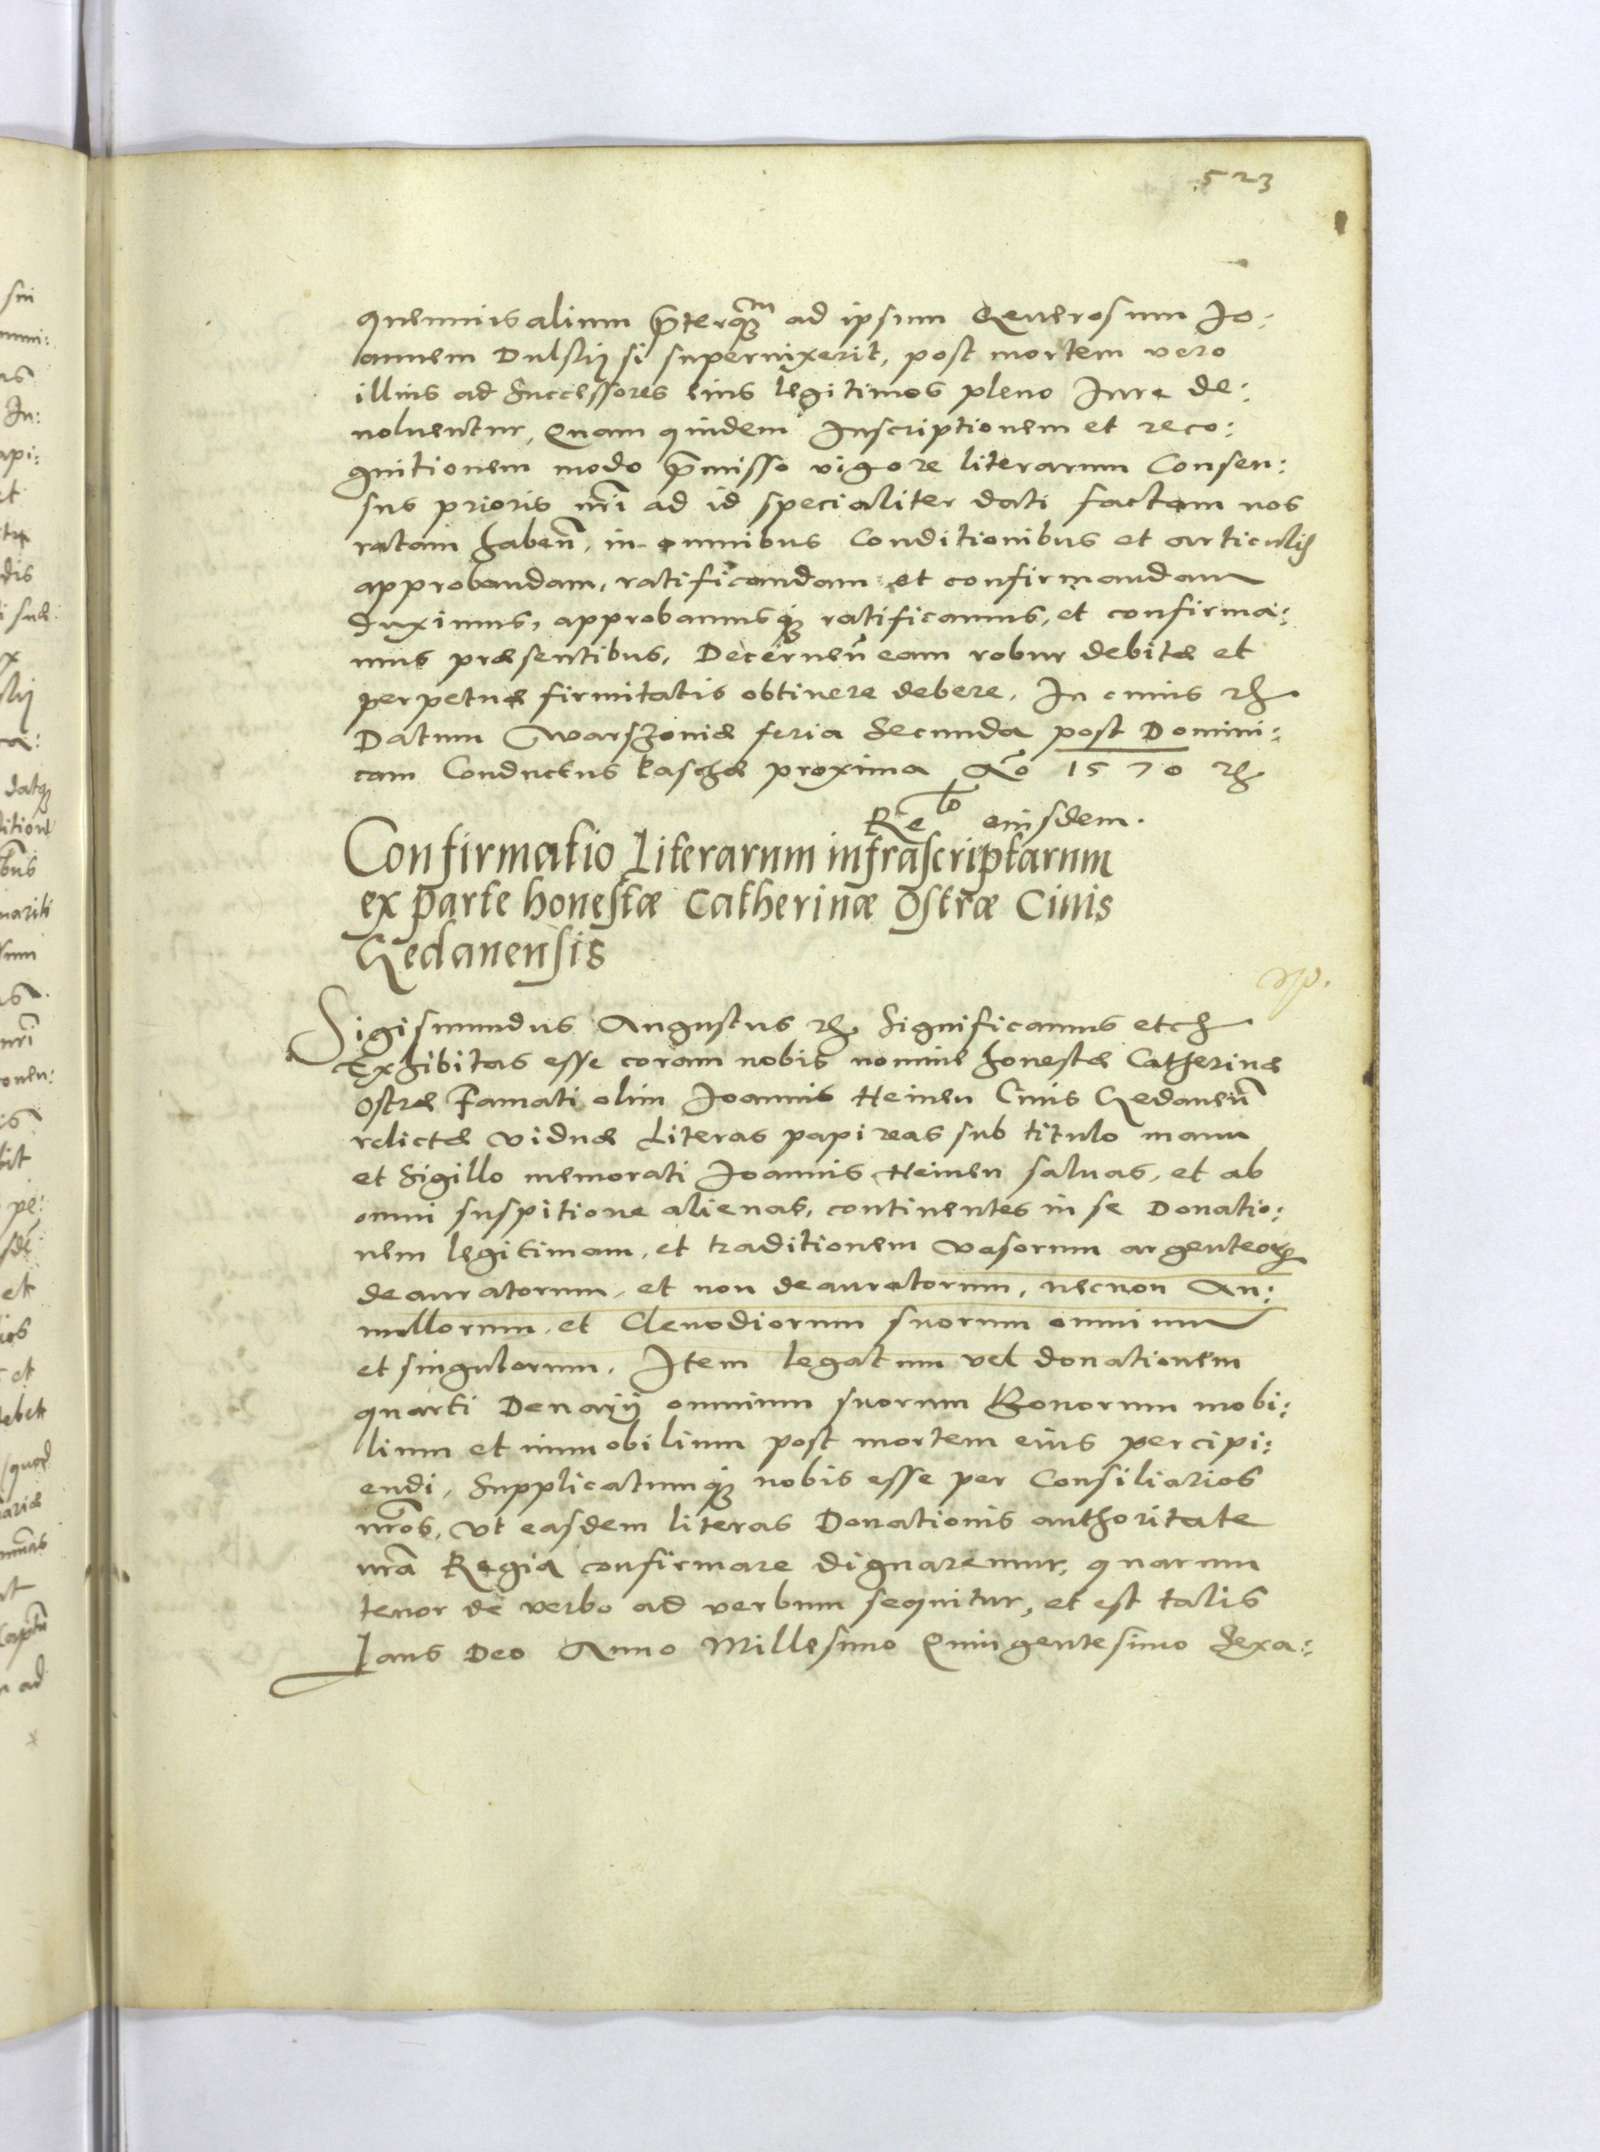 523
quemuis alium p̃terq̃ꝫ ad ipsum Generosum Io:
annem Dulskij si superuixerit, post mortem vero
illius ad Successores eius legitimos pleno Iure de:
uoluentur, Quam quidem Inscriptionem et reco:
gnitionem modo p̃misso vigore literarum Consen:
sus prioris nrĩ ad id specialiter dati factam nos
ratam habeñ, in omnibus Conditionibus et articulis
approbandam, ratificandam et confirmandam
duximus, approbamusqꝫ ratificamus, et confirma:
mus præsentibus, Decerneñ eam robur debitæ et
perpetuæ firmitatis obtinere debere. In cuius etc
Datum Warszouiæ feria Secunda post Domini:
cam Conductus Paschæ proxima Ao 1570 etc
Relo eiusdem.
Confirmatio Literarum infrascriptarum
ex parte honestæ Catherinæ Ostræ Ciuis
Gedanensis
Sigismundus Augustus etc. Significamus etc
Exhibitas esse coram nobis nomine honestæ Catherinæ
Ostræ Famati olim Joannis Heinen Ciuis Gedaneñ
relictæ viduæ Literas papireas sub titulo manu
et Sigillo memorati Joannis Heinen saluas, et ab
omni suspitione alienas, continentes in se Donatio:
nem legitimam, et traditionem vasorum argenteorꝫ
deauratorum, et non deauratorum, necnon An:
nullorum, et Clenodiorum suorum omnium
et singulorum, Item legatum vel donationem
quarti Denarij omnium suorum Bonorum mobi:
lium et immobilium post mortem eius percipi:
endi, Supplicatumqꝫ nobis esse per Consiliarios
nrõs, vt easdem literas Donationis authoritate
nrã Regia confirmare dignaremur, quarum
tenor de verbo ad verbum sequitur, et est talis
Laus Deo Anno Millesimo Quingentesimo Sexa: